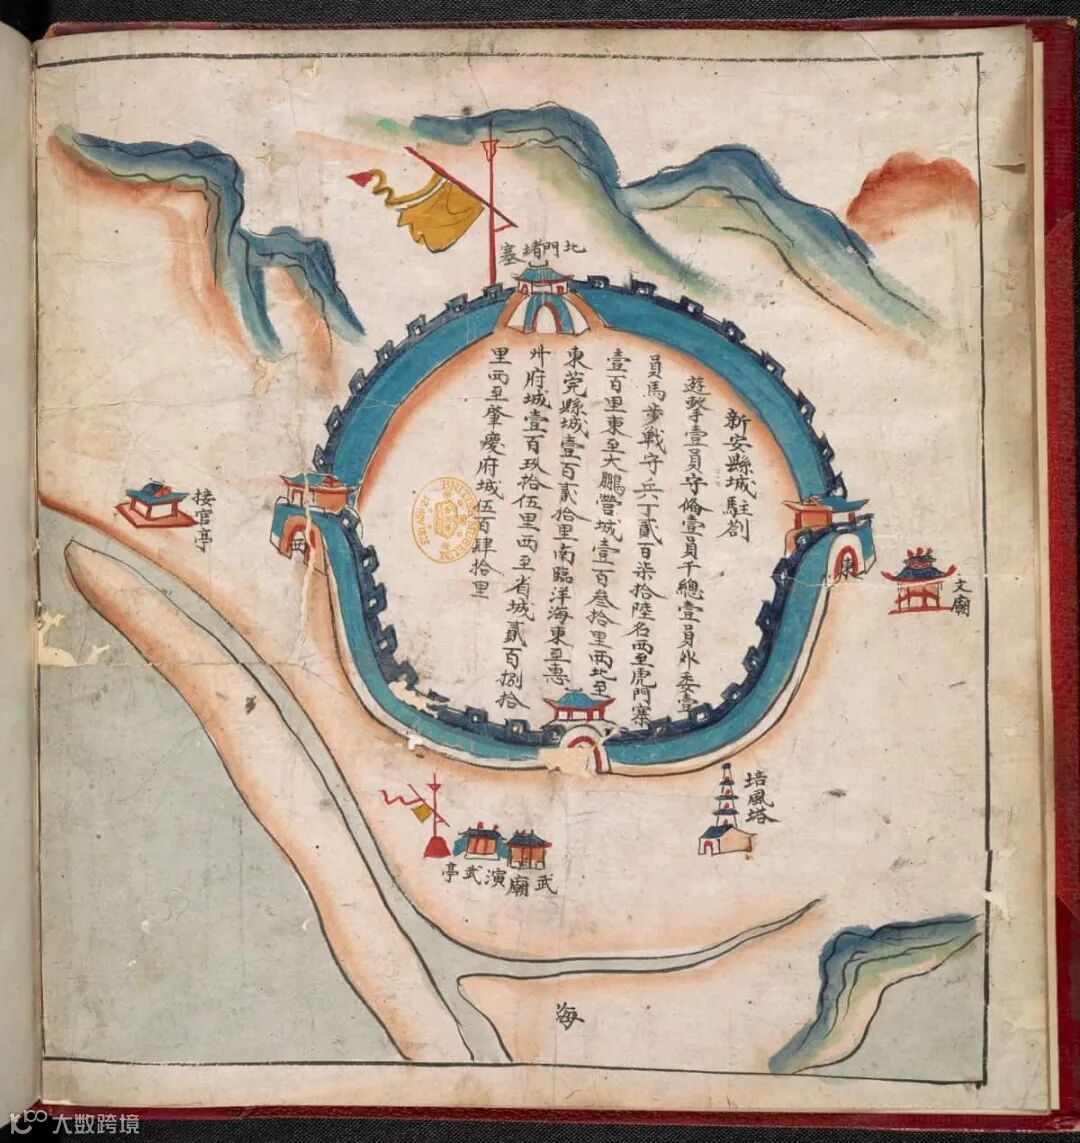 北門堵塞
新安縣城駐劄
遊擊壹員守俻壹員千總壹員外委壹
員馬步戰守兵丁貳百柒拾陸名西至虎門寨
壹百里東至大鵬營城壹百叁拾里西北至
東莞縣城壹百貳拾里南臨洋海東至惠
州府城壹百玖拾伍里西至省城貳百捌拾
里西至肇慶府城伍百肆拾里
接官亭
西
東
文廟
培風塔
武廟演武亭
海
大数跨境